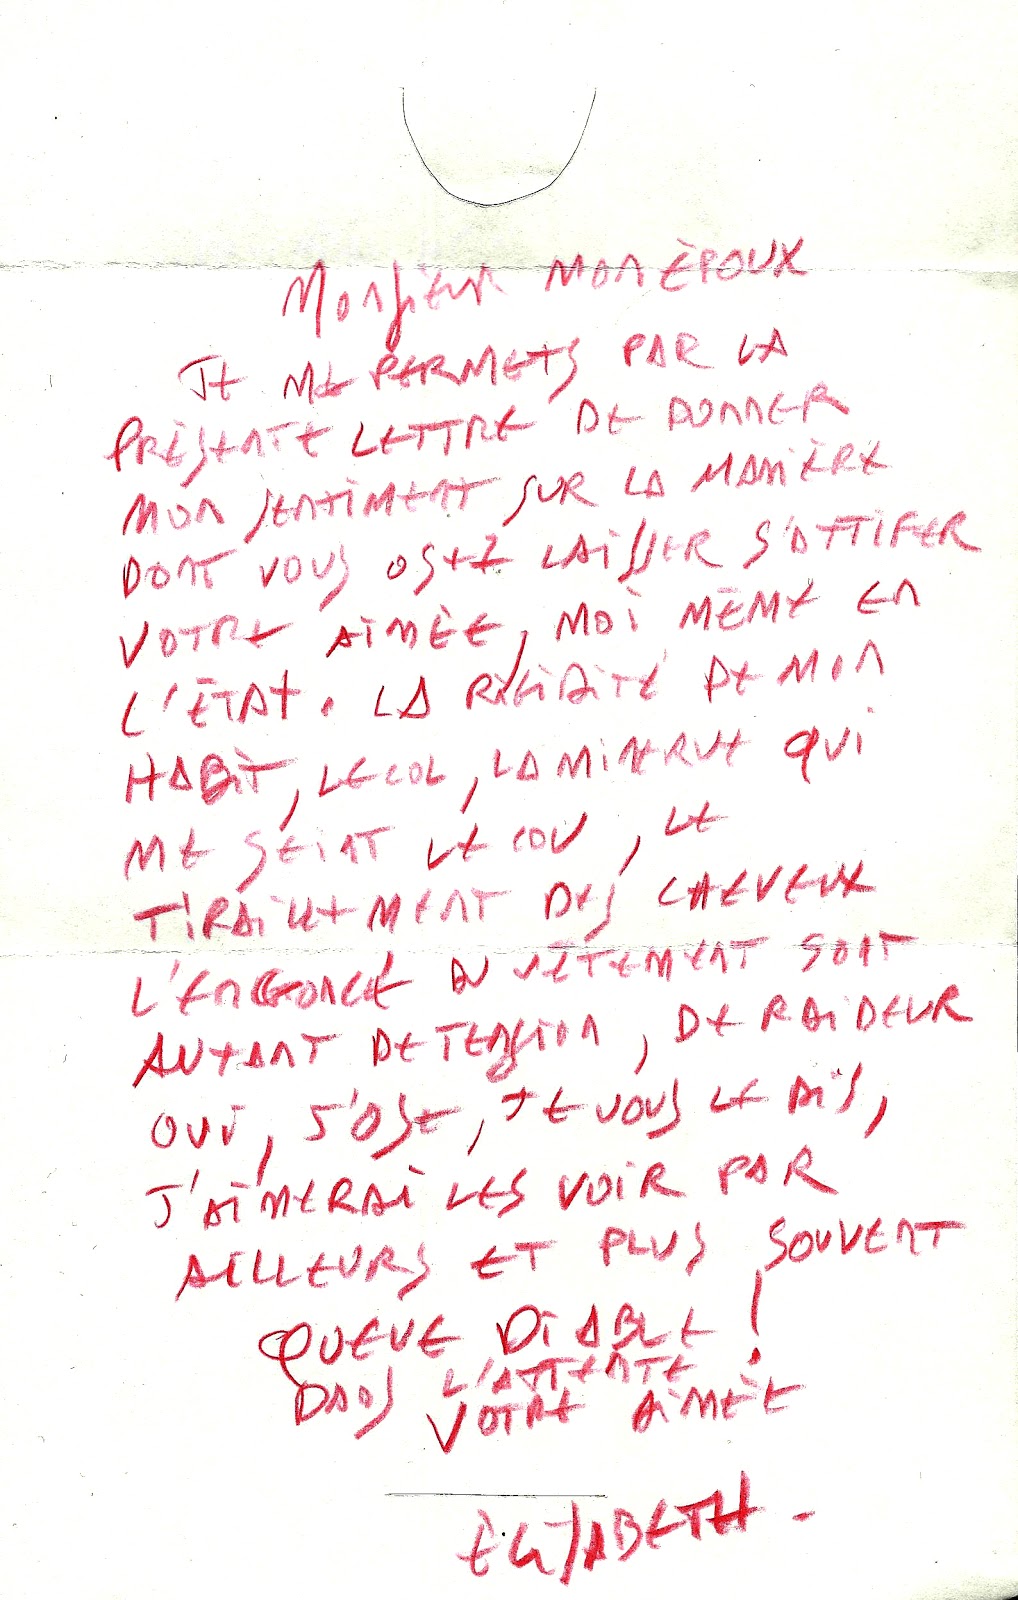 Monsieur MON ÉPOUX
JE ME PERMETS PAR LA
PRÉSENTE LETTRE DE DONNER
MON SENTIMENT SUR LA MANIÈRE
DONT VOUS OSEZ LAISSER S'ATTIFER
VOTRE AIMÉE, MOI MÊME EN
L'ÉTAT. LA RIGIDITÉ DE MON
HABIT, LE COL, LA MINERVE QUI
ME SEINT LE COU, LE
TIRAILLEMENT DES CHEVEUX
L'ENGONCÉ DU VÊTEMENT SONT
AUTANT DE TENSION, DE RAIDEUR
OUI, J'OSE, JE VOUS LE DIS,
J'AIMERAI LES VOIR PAR
AILLEURS ET PLUS SOUVENT
QUEUE DIABLE !
DANS L'ATTENTE
VOTRE AIMÉE
ÉLISABETH.